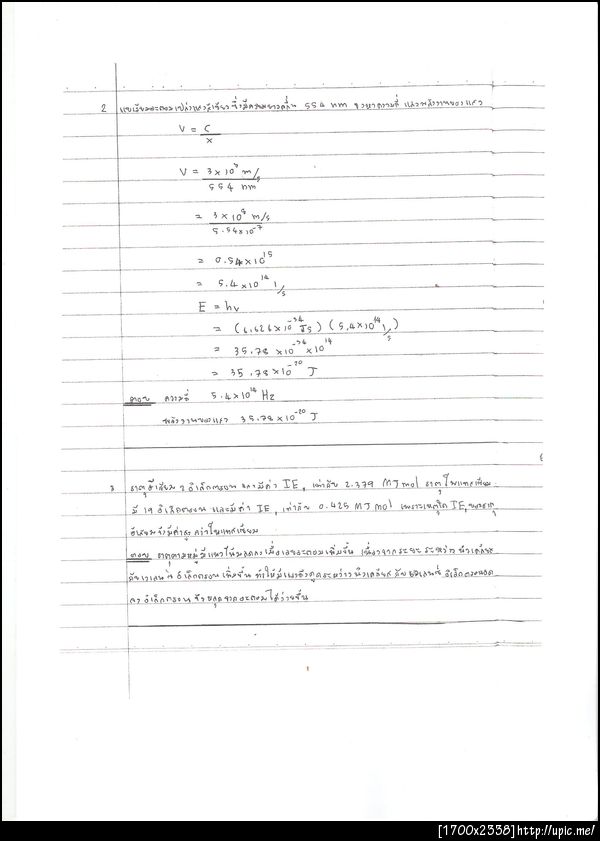 2 แบเรียมอะตอมเปล่งแสงสีเขียวซึ่งมีความยาวคลื่น 554 nm จงหาความถี่ และพลังงานของแสง
V = C
x
V = 3 × 10⁸ m/s
554 nm
= 3 × 10⁸ m/s
5.54×10⁻⁷
= 0.54×10¹⁵
= 5.4×10¹⁴ 1/s
E = hv
= (6.626×10⁻³⁴ Js) (5.4×10¹⁴ 1/s)
= 35.78 ×10⁻³⁴×10¹⁴
= 35.78×10⁻²⁰ J
ตอบ ความถี่ 5.4×10¹⁴ Hz
พลังงานของแสง 35.78×10⁻²⁰ J
3. ธาตุฮีเลียม 2 อิเล็กตรอน และมีค่า IE, เท่ากับ 2.379 MJmol ธาตุโพแทสเซียม
มี 19 อิเล็กตรอน และมีค่า IE, เท่ากับ 0.425 MJ mol เพราะเหตุใด IE, ของธาตุ
ฮีเลียมจึงมีค่าสูงกว่าโพแทสเซียม
ตอบ ธาตุตามหมู่มีแนวโน้มลดลงเมื่อเลขอะตอมเพิ่มขึ้น เนื่องจากระยะระหว่างนิวเคลียส
กับเวเลนซ์อิเล็กตรอนเพิ่มขึ้น ทำให้มีแรงดึงดูดระหว่างนิวเคลียสกับเวเลนซ์อิเล็กตรอนลด
ลง อิเล็กตรอนจึงหลุดจากอะตอมได้ง่ายขึ้น
[1700x2338]http://upic.me/